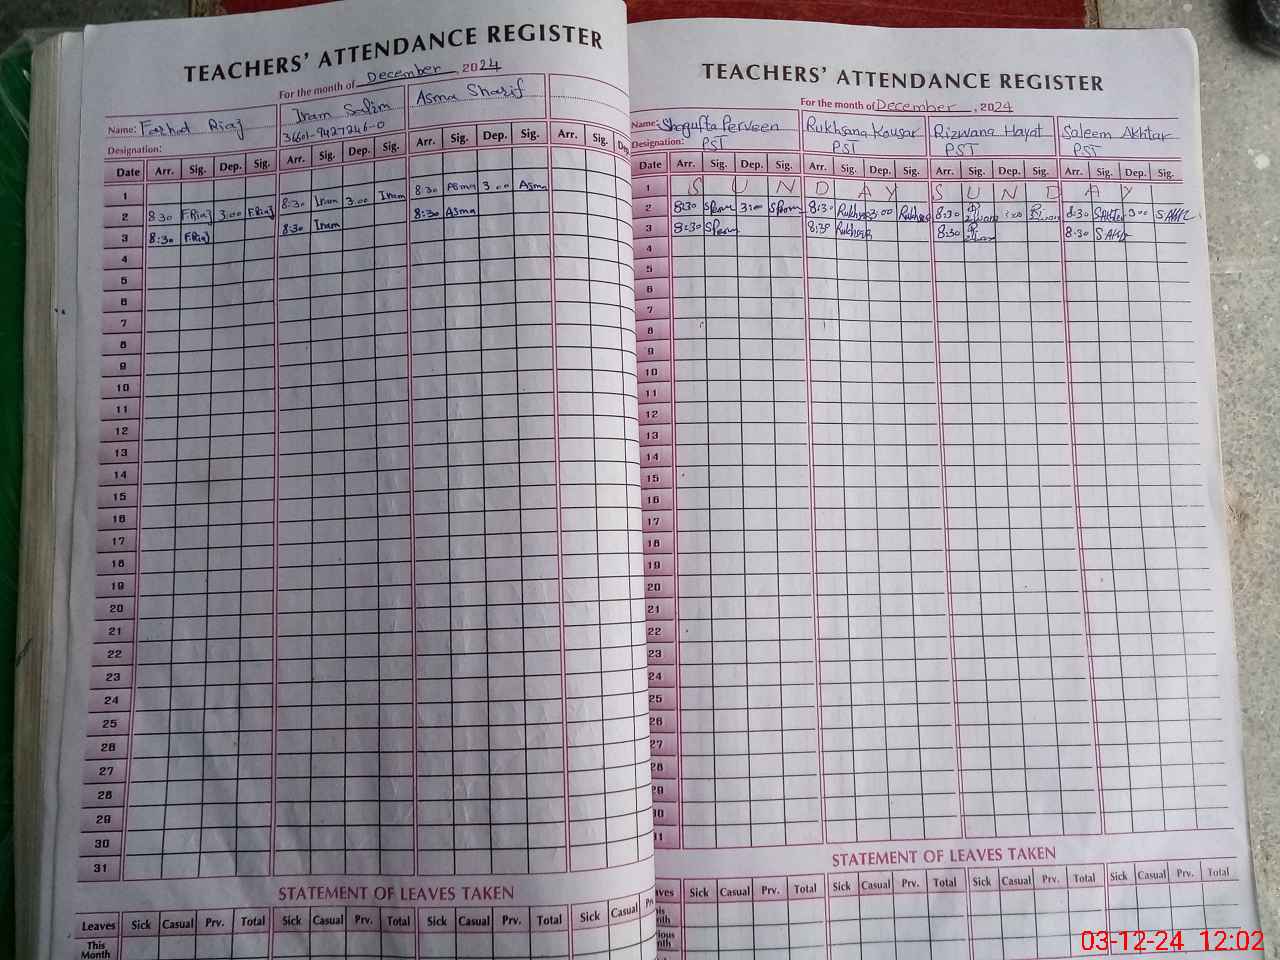 TEACHERS' ATTENDANCE REGISTER
For the month of December, 2024
Name: Farhat Riaz
Iram Salim
Asma Sharif
Designation:
Date Arr. Sig. Dep. Sig. Arr. Sig. Dep. Sig. Arr. Sig. Dep. Sig. Arr. Sig. Dep.
1
2 8:30 F.Riaz 3:00 F.Riaz 8:30 Iram 3:00 Iram 8:30 Asma 3:00 Asma
3 8:30 F.Riaz 8:30 Iram 8:30 Asma
4
5
6
7
8
9
10
11
12
13
14
15
16
17
18
19
20
21
22
23
24
25
26
27
28
29
30
31
STATEMENT OF LEAVES TAKEN
Leaves Sick Casual Prv. Total Sick Casual Prv. Total Sick Casual Prv. Total Sick Casual
This Month
TEACHERS' ATTENDANCE REGISTER
For the month of December, 2024
Name: Shagufta Perveen Rukhsana Kousar Rizwana Hayat Saleem Akhtar
Designation: PST PST PST PST
Date Arr. Sig. Dep. Sig. Arr. Sig. Dep. Sig. Arr. Sig. Dep. Sig. Arr. Sig. Dep. Sig.
1 S U N D A Y S U N D A Y
2 8:30 3:00 8:30 Rukhsana 3:00 Rukhsana 8:30 3:00 8:30 3:00
3 8:30 8:30 Rukhsana 8:30 8:30
4
5
6
7
8
9
10
11
12
13
14
15
16
17
18
19
20
21
22
23
24
25
26
27
28
29
30
31
STATEMENT OF LEAVES TAKEN
Sick Casual Prv. Total Sick Casual Prv. Total Sick Casual Prv. Total Sick Casual Prv. Total
03-12-24 12:02